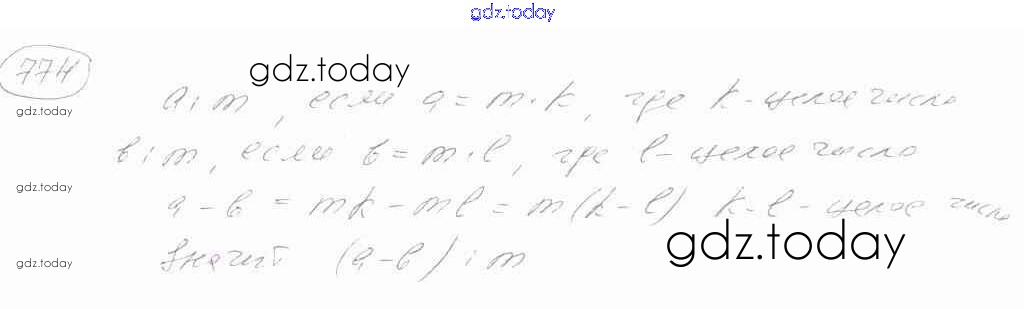 gdz.today
774
gdz.today
a ⋮ m, если a = m · k, где k - целое число
gdz.today
в ⋮ m, если в = m · l, где l - целое число
gdz.today
a - в = mk - ml = m(k - l) k - l - целое число
gdz.today
Значит (a - в) ⋮ m
gdz.today